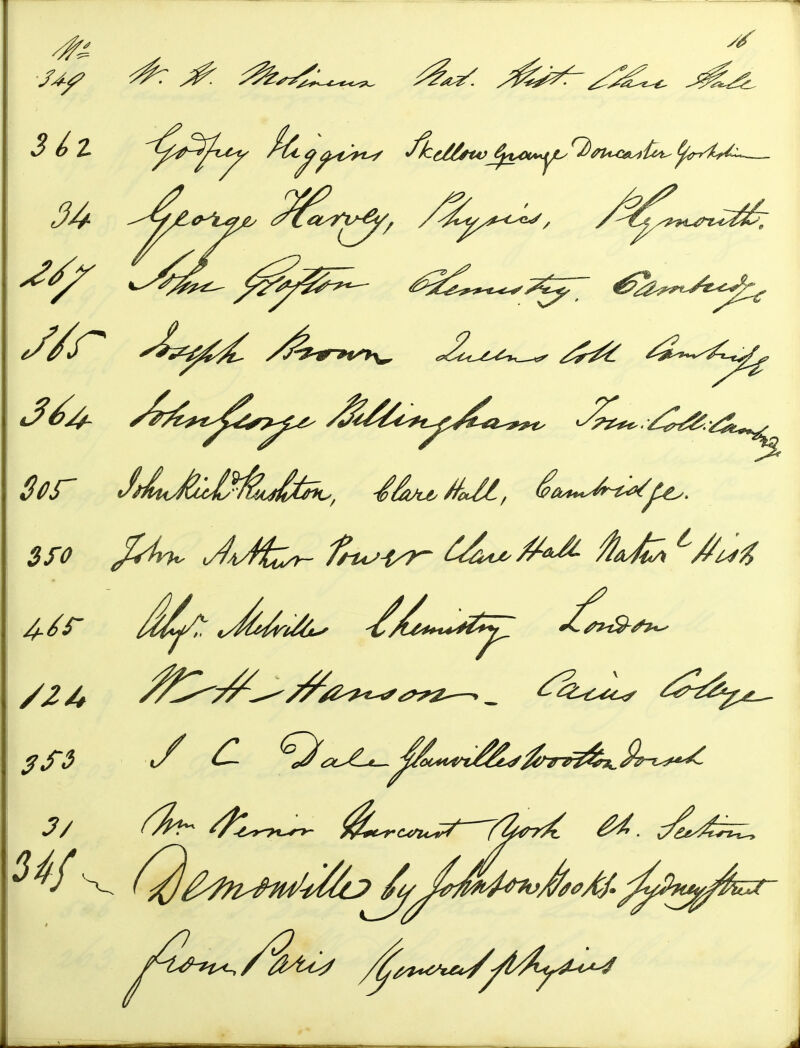 16
No
349 W. H. Molineux Nat. Hist. Clare Hall
362 Godfrey Higgins Skellow Grange Doncaster Yorkshire
34 George Harvey, Physics, Plymouth.
267 John Grafton Chemistry. Cambridge
365 Joseph Brown Queens Coll Cambridge
364 John George Billingham Trin: Coll: Cambridge
305 John Richd. Rushton, Clare Hall, Cambridge.
350 John Arthur Power Clare Hall Naturl Hist
465 Alexr. Melville Chemistry London
124 W-H-Hanson - Caius College
353 J C Dale Glanvilles Wootton Dorset
31 Wm Vernon Harcourt York Ch. Section
345 Demonville by Johnson Books. Sydney Street
from Paris General physics